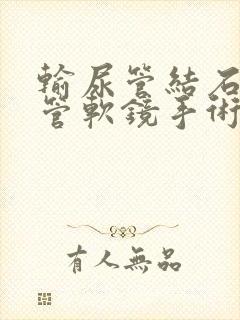 輸尿管結石
管軟鏡手術
有人無品